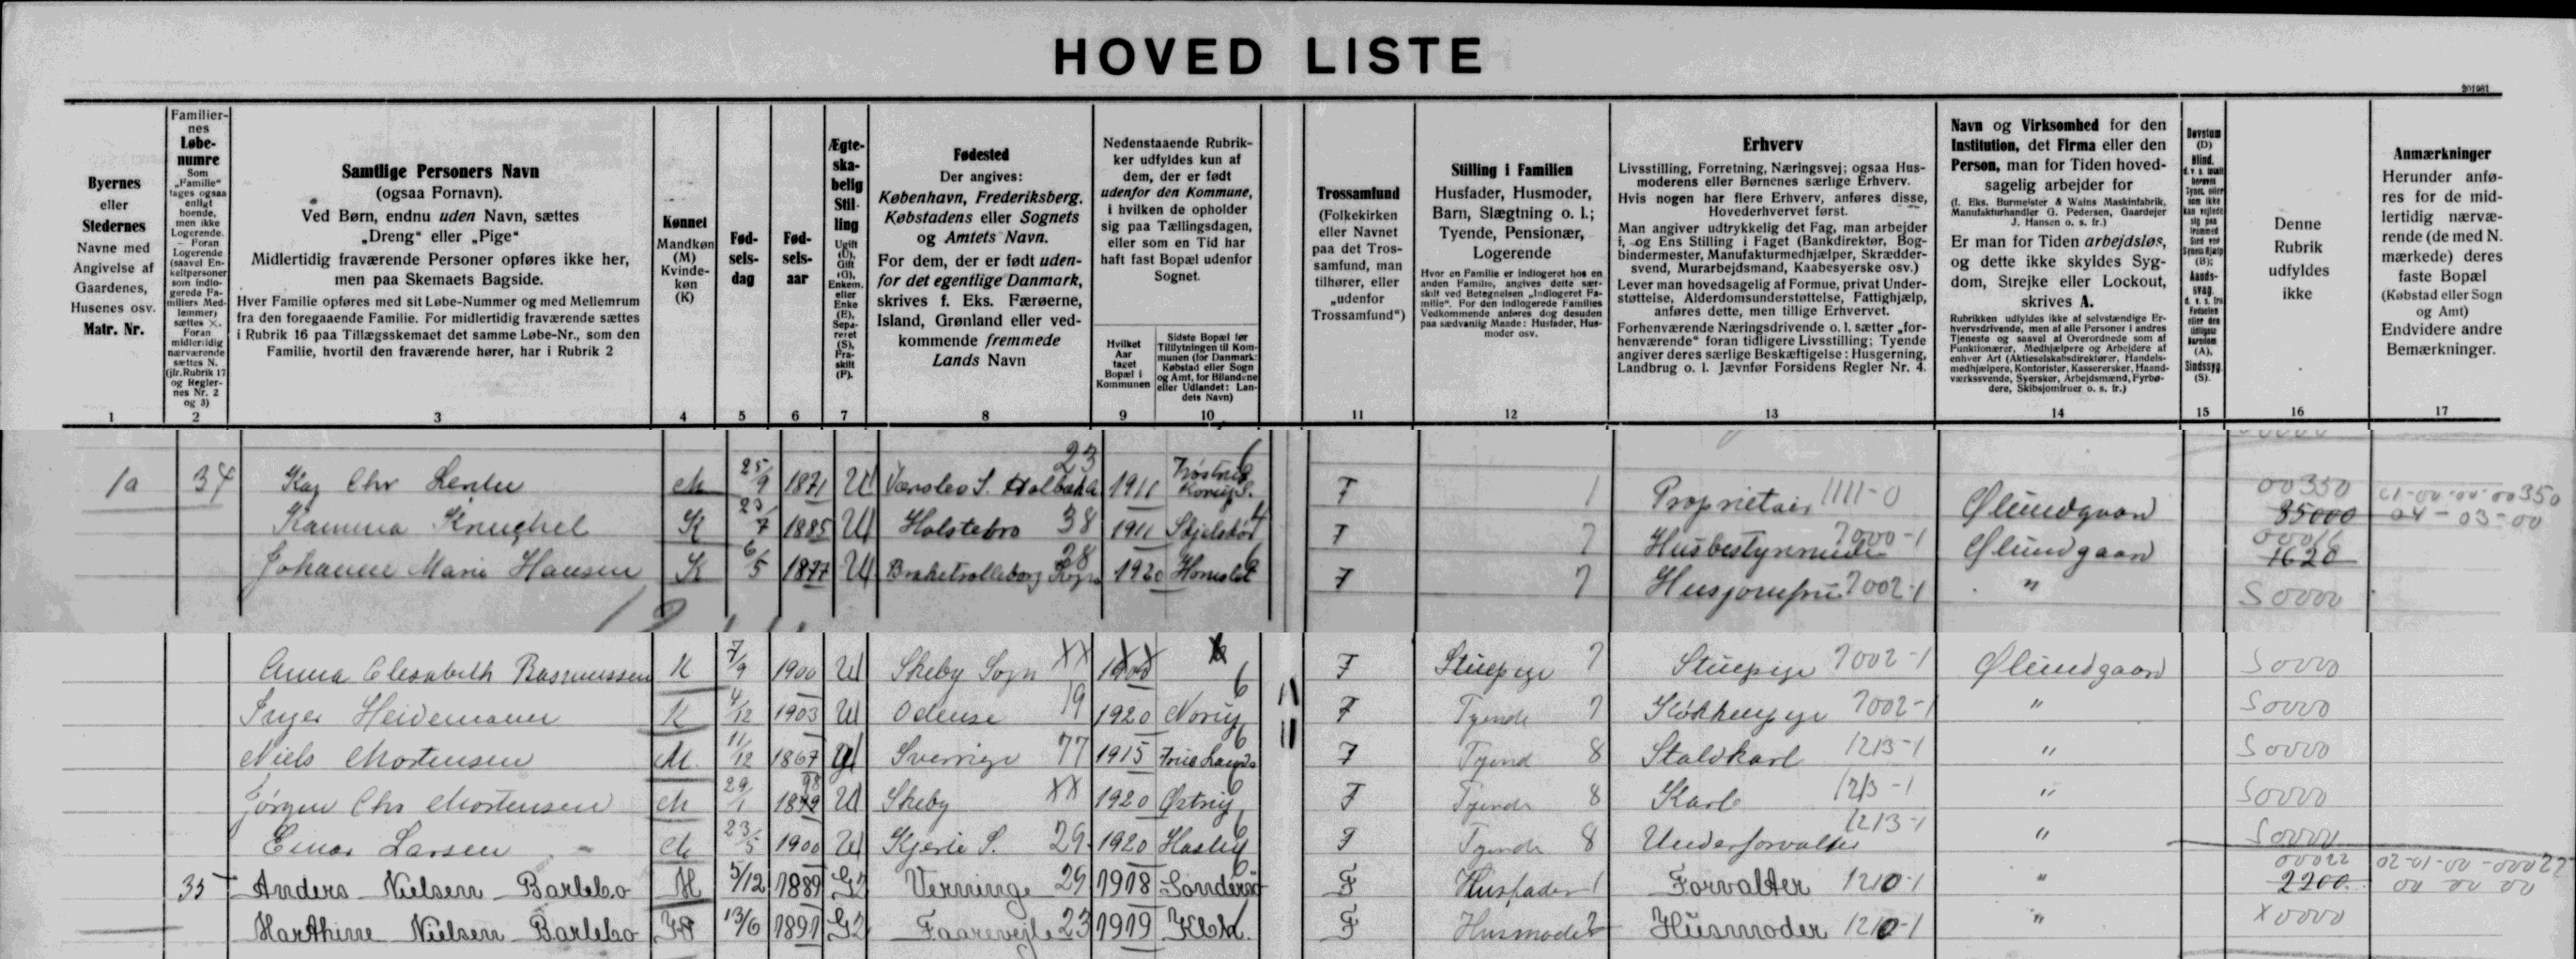 HOVED LISTE
201981
Byernes
eller
Stedernes
Navne med
Angivelse af
Gaardenes,
Husenes osv.
Matr. Nr.
1
Familier-
nes
Løbe-
numre
Som
„Familie"
tages ogsaa
enligt
boende,
men ikke
Logerende.
— Foran
Logerende
(saavel En-
keltpersoner
som indlo-
gerede Fa-
miliers Med-
lemmer)
sættes ×.
Foran
midlertidig
nærværende
sættes N.
(jfr. Rubrik 17
og Regler-
nes Nr. 2
og 3)
2
Samtlige Personers Navn
(ogsaa Fornavn).
Ved Børn, endnu uden Navn, sættes
„Dreng" eller „Pige"
Midlertidig fraværende Personer opføres ikke her,
men paa Skemaets Bagside.
Hver Familie opføres med sit Løbe-Nummer og med Mellemrum
fra den foregaaende Familie. For midlertidig fraværende sættes
i Rubrik 16 paa Tillægsskemaet det samme Løbe-Nr., som den
Familie, hvortil den fraværende hører, har i Rubrik 2
3
Kønnet
Mandkøn
(M)
Kvinde-
køn
(K)
4
Fød-
sels-
dag
5
Fød-
sels-
aar
6
Ægte-
ska-
belig
Stil-
ling
Ugift
(U),
Gift
(G),
Enkem.
eller
Enke
(E),
Sepa-
reret
(S),
Fra-
skilt
(F).
7
Fødested
Der angives:
København, Frederiksberg,
Købstadens eller Sognets
og Amtets Navn.
For dem, der er født uden-
for det egentlige Danmark,
skrives f. Eks. Færøerne,
Island, Grønland eller ved-
kommende fremmede
Lands Navn
8
Nedenstaaende Rubrik-
ker udfyldes kun af
dem, der er født
udenfor den Kommune,
i hvilken de opholder
sig paa Tællingsdagen,
eller som en Tid har
haft fast Bopæl udenfor
Sognet.
Hvilket
Aar
taget
Bopæl i
Kommunen
9
Sidste Bopæl før
Tilflytningen til Kom-
munen (for Danmark:
Købstad eller Sogn
og Amt, for Bilandene
eller Udlandet: Lan-
dets Navn)
10
Trossamfund
(Folkekirken
eller Navnet
paa det Tros-
samfund, man
tilhører, eller
„udenfor
Trossamfund")
11
Stilling i Familien
Husfader, Husmoder,
Barn, Slægtning o. l.;
Tyende, Pensionær,
Logerende
Hvor en Familie er indlogeret hos en
anden Familie, angives dette sær-
skilt ved Betegnelsen „Indlogeret Fa-
milie". For den indlogerede Families
Vedkommende anføres dog desuden
paa sædvanlig Maade: Husfader, Hus-
moder osv.
12
Erhverv
Livsstilling, Forretning, Næringsvej; ogsaa Hus-
moderens eller Børnenes særlige Erhverv.
Hvis nogen har flere Erhverv, anføres disse,
Hovederhvervet først.
Man angiver udtrykkelig det Fag, man arbejder
i, og Ens Stilling i Faget (Bankdirektør, Bog-
bindermester, Manufakturmedhjælper, Skrædder-
svend, Murarbejdsmand, Kaabesyerske osv.)
Lever man hovedsagelig af Formue, privat Under-
støttelse, Alderdomsunderstøttelse, Fattighjælp,
anføres dette, men tillige Erhvervet.
Forhenværende Næringsdrivende o. l. sætter „for-
henværende" foran tidligere Livsstilling; Tyende
angiver deres særlige Beskæftigelse: Husgerning,
Landbrug o. l. Jævnfør Forsidens Regler Nr. 4.
13
Navn og Virksomhed for den
Institution, det Firma eller den
Person, man for Tiden hoved-
sagelig arbejder for
(f. Eks. Burmeister & Wains Maskinfabrik,
Manufakturhandler G. Pedersen, Gaardejer
J. Hansen o. s. fr.)
Er man for Tiden arbejdsløs,
og dette ikke skyldes Syg-
dom, Strejke eller Lockout,
skrives A.
Rubrikken udfyldes ikke af selvstændige Er-
hvervsdrivende, men af alle Personer i andres
Tjeneste og saavel af Overordnede som af
Funktionærer, Medhjælpere og Arbejdere af
enhver Art (Aktieselskabsdirektører, Handels-
medhjælpere, Kontorister, Kassererske, Haand-
værkssvende, Syersker, Arbejdsmænd, Fyrbø-
dere, Skibsjomfruer o. s. fr.)
14
Døvstum
(D)
Blind,
(B);
Aands-
svag,
(A),
Sindssyg
(S).
15
Denne
Rubrik
udfyldes
ikke
16
Anmærkninger
Herunder anfø-
res for de mid-
lertidig nærvæ-
rende (de med N.
mærkede) deres
faste Bopæl
(Købstad eller Sogn
og Amt)
Endvidere andre
Bemærkninger.
17
1a 34 Kaj Chr M 25/9 1871 U Værslev S. Holbæk A 23 1911 6 F 1 Proprietair 1111-0 Ølundgaard 00350 85000 01-00-00-00350
Kamma K 23/7 1885 U Holstebro 38 1911 Skjelskør 4 F 7 Husbestyrerinde 7000-1 Ølundgaard 00016 1620 04-03-00
Johanne Marie Hansen K 6/5 1877 U Brahetrolleborg Sogn 28 1920 Hornslet 6 F 7 Husjomfru 7002-1 " S0000
Anna Elisabeth Rasmussen K 7/9 1900 U Skeby Sogn XX 1900 F Stuepige 7 Stuepige 7002-1 Ølundgaard S0000
Inger Heidemann K 4/12 1903 U Odense 19 1920 Norup 6 F Tyende 7 Kökkenpige 7002-1 " S0000
Niels Mortensen M 11/12 1867 U Sverrige 77 1915 6 F Tyend 8 Staldkarl 1213-1 " S0000
Jörgen Chr Mortensen M 29/1 1899 98 U Skeby XX 1920 Østrup 6 F Tyende 8 Karl 1213-1 " S0000
Einar Larsen M 23/5 1900 U Kjerte S. 29 1920 6 F Tyende 8 Underforvalter 1213-1 " S0000
35 Anders Nielsen Barlebo M 5/12 1889 G Verninge 29 1918 Sondersö 6 F Husfader 1 Forvalter 1210-1 " 00022 2200 02-01-00-00022
Marthine Nielsen Barlebo K 13/6 1891 G Faarevejle 23 1919 Kbh. 1 F Husmoder 2 Husmoder 1210-1 " X0000 00 00 00